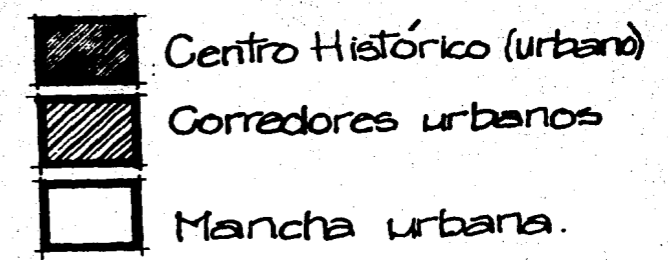 Centro Histórico (urbano)
Corredores urbanos
Mancha urbana.